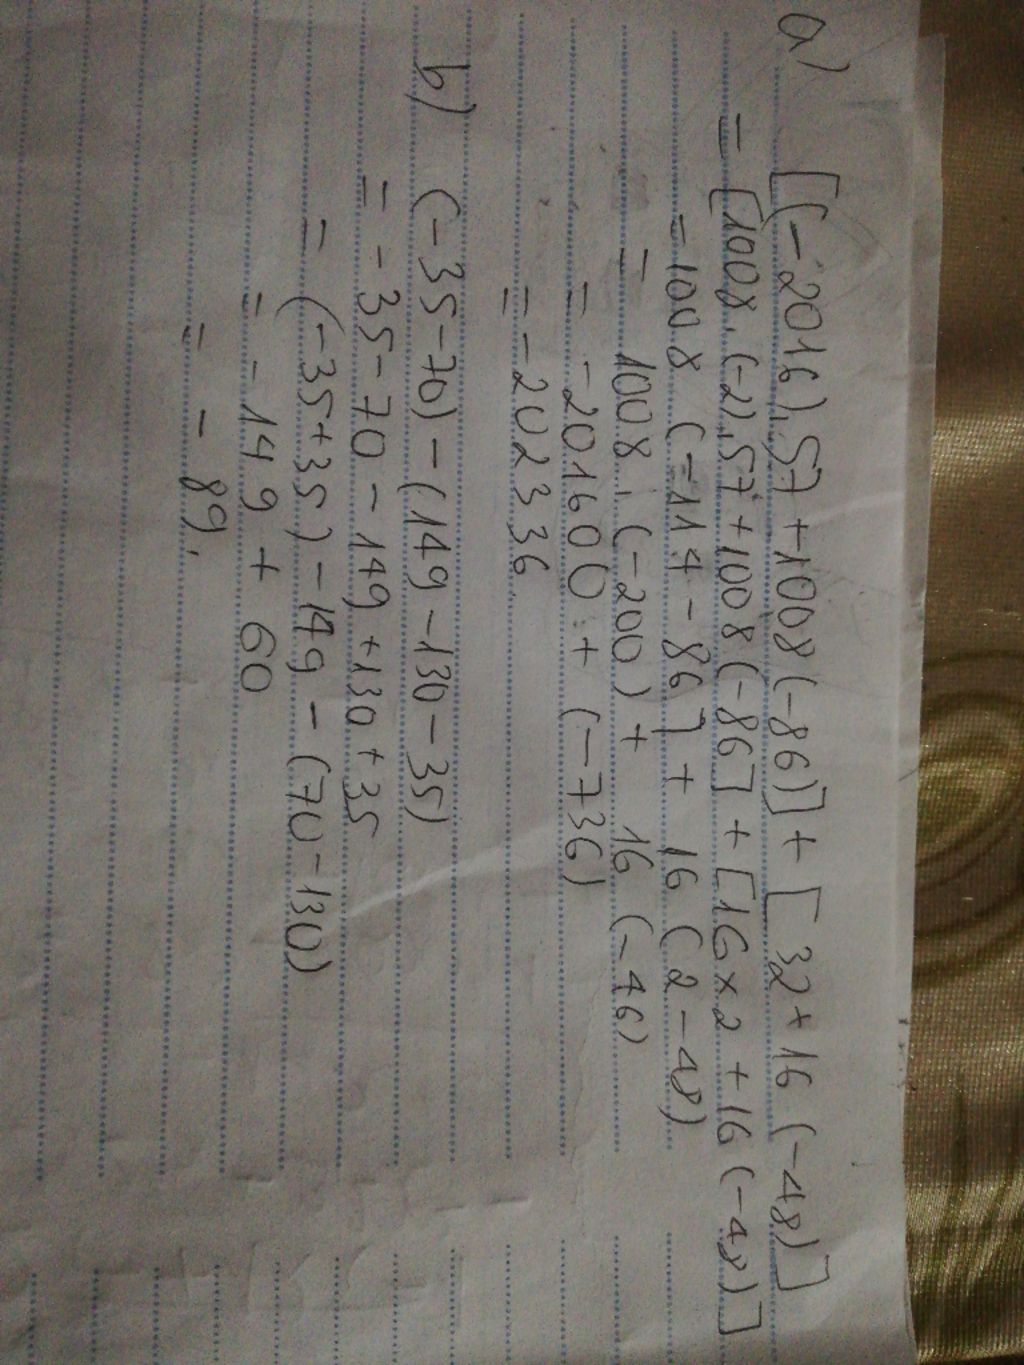 a) [(-2016).57 + 1008(-86)] + [32 + 16 (-48)]
= [1008.(-2).57 + 1008(-86] + [16 x 2 + 16(-48)]
= 1008 (-114 - 86] + 16 (2 - 48)
= 1008.(-200) + 16 (-46)
= -201600 + (-736)
= -202336
b) (-35-70) - (149 - 130 - 35)
= -35 - 70 - 149 + 130 + 35
= (-35+35) - 149 - (70 - 130)
= -149 + 60
= -89.